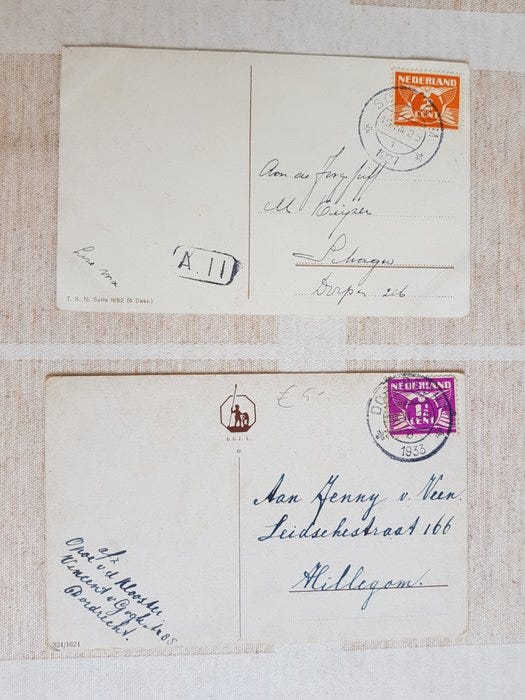 NEDERLAND
2
CENT
1927
Aan de Jongejuff
M Keijzer
Schagen
Dorpen 246
A.11
T. S. N. Serie 1852 (6 Dess.)
€5-
NEDERLAND
1½
CENT
DO
1933
Aan Jenny v. Veen.
Leidschestraat 166
Hillegom.
afz
Opoe v.d. Klooster
Vincent v Gogh
Dordrecht.
324/1624